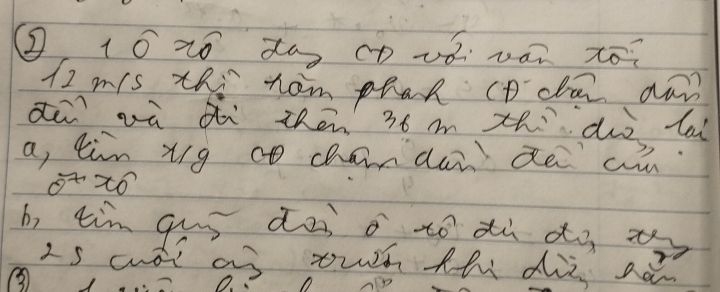 ② 1 ô tô đag CĐ với vận tốc
12 m/s thì hãm phanh CĐ chậm dần
đều và đi thêm 36 m thì dừg lại
a, tìm t/g CĐ chậm dần đều của
ô tô
b, tìm quãg đườ ô tô đi đc
2s cuối cù trước khi dừg hẳn
③